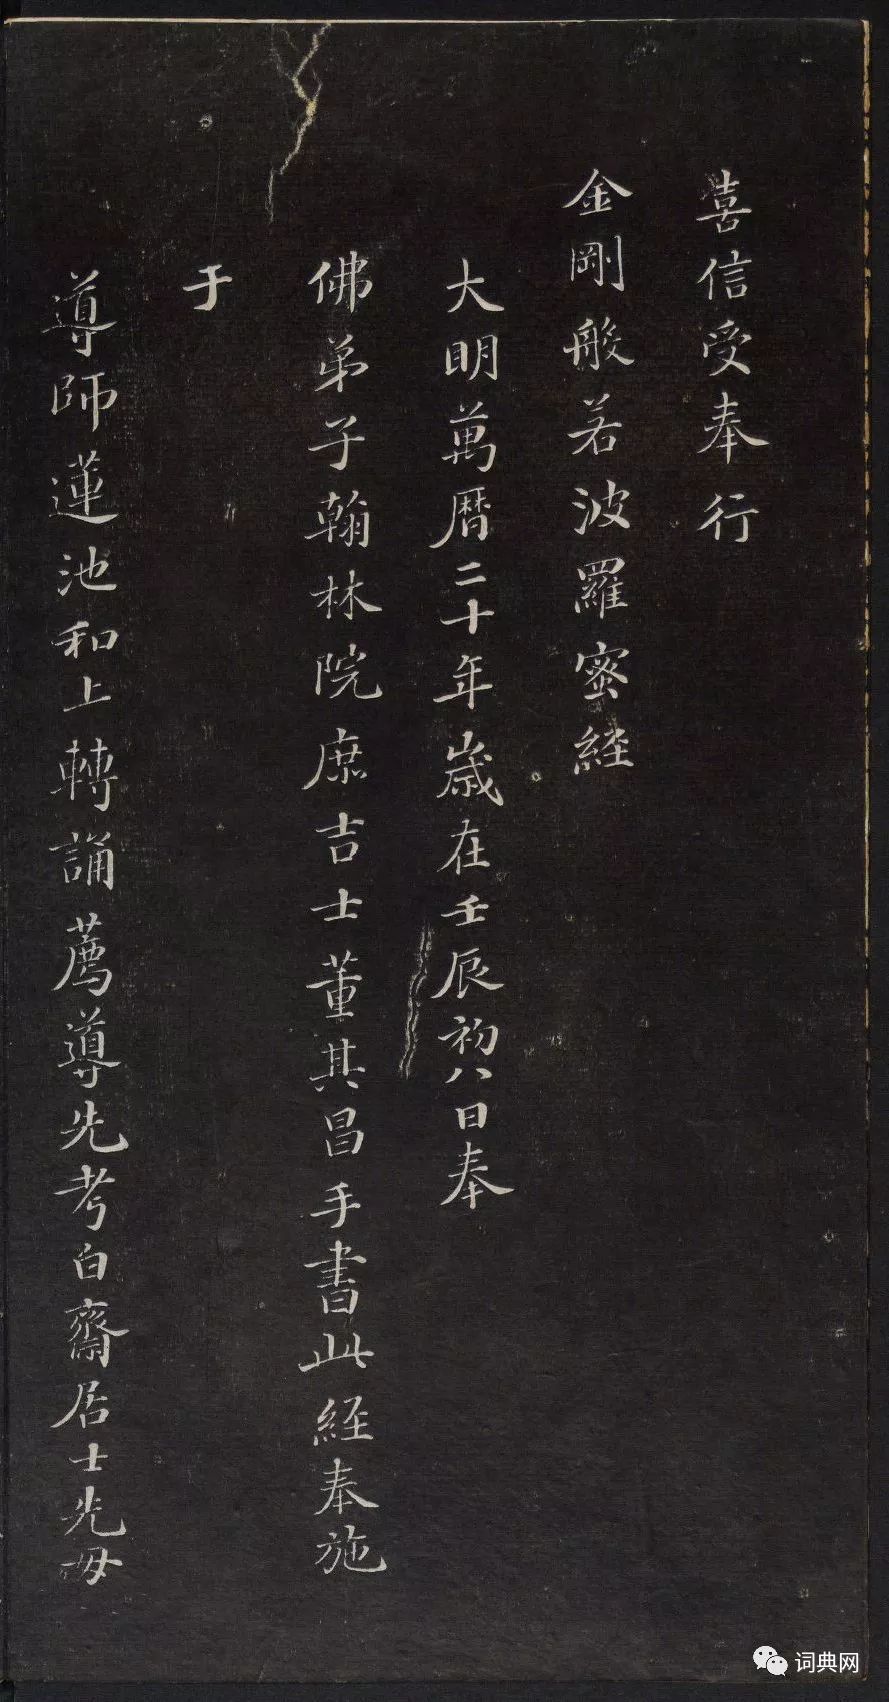 喜信受奉行
金剛般若波羅蜜經
大明萬曆二十年歲在壬辰初八日奉
佛弟子翰林院庶吉士董其昌手書此經奉施
于
導師蓮池和上轉誦薦導先考白齋居士先母
词典网